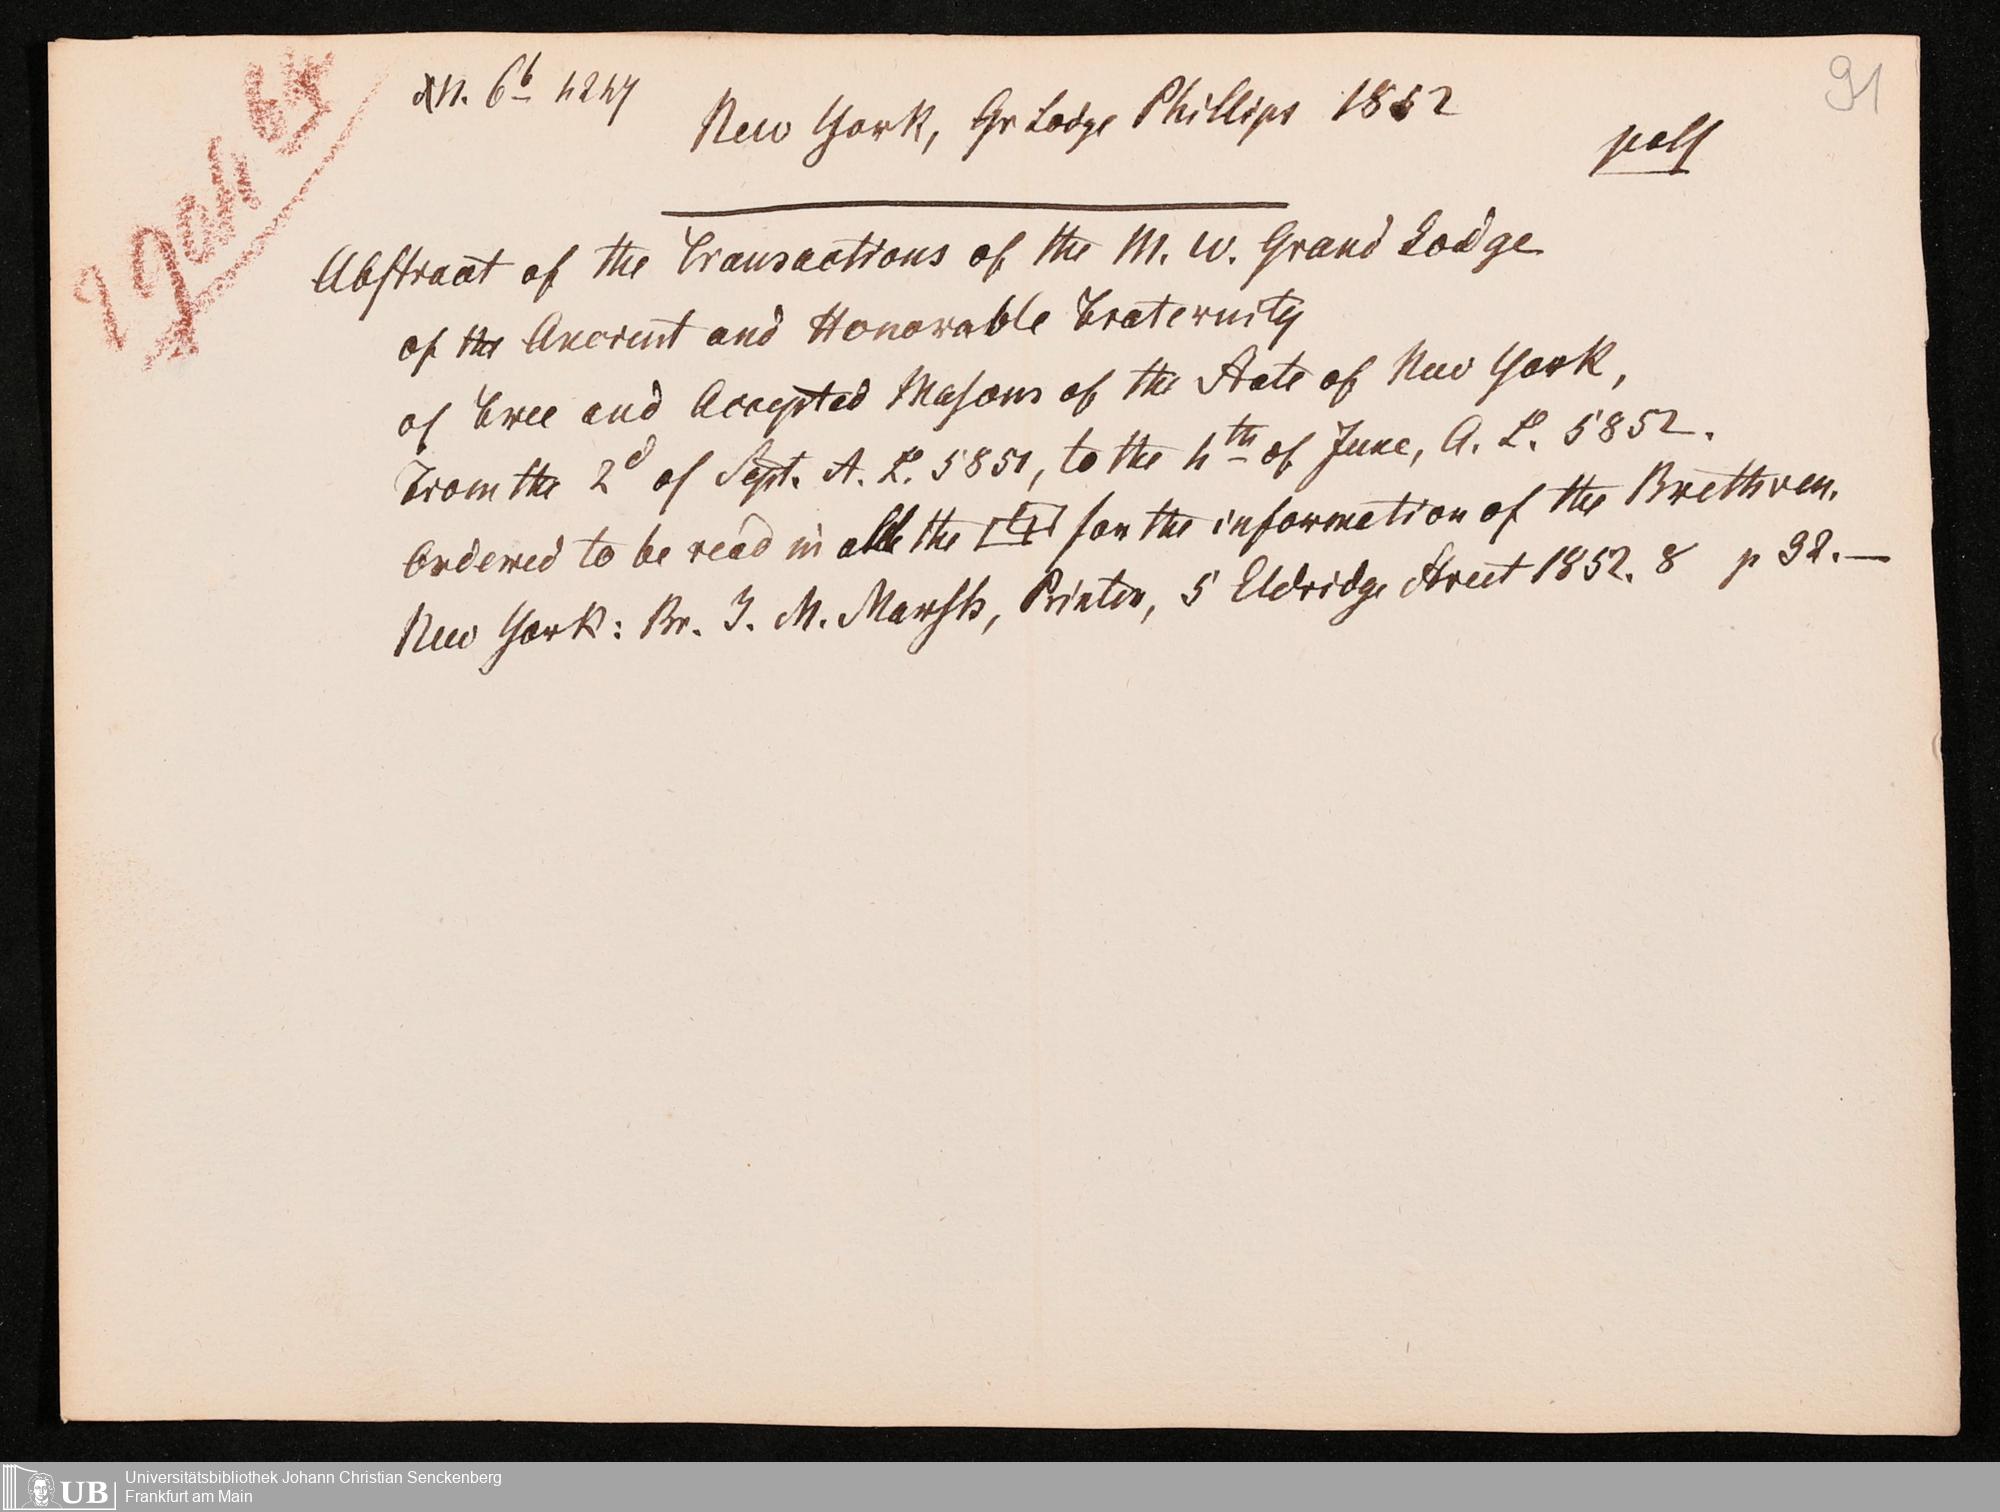 91
N. 6b 4247
New York, Gr Lodge Phillips 1852
Abstract of the Transactions of the M. W. Grand Lodge
of the Ancient and Honorable Fraternity
of Free and Accepted Masons of the State of New York,
From the 2d of Sept. A. L. 5851, to the 4th of June, A. L. 5852.
Ordered to be read in all the for the information of the Brethren.
New York: Br. J. M. Marsh, Printer, 5 Eldridge Street 1852. 8 p 32.—
UB
Universitätsbibliothek Johann Christian Senckenberg
Frankfurt am Main